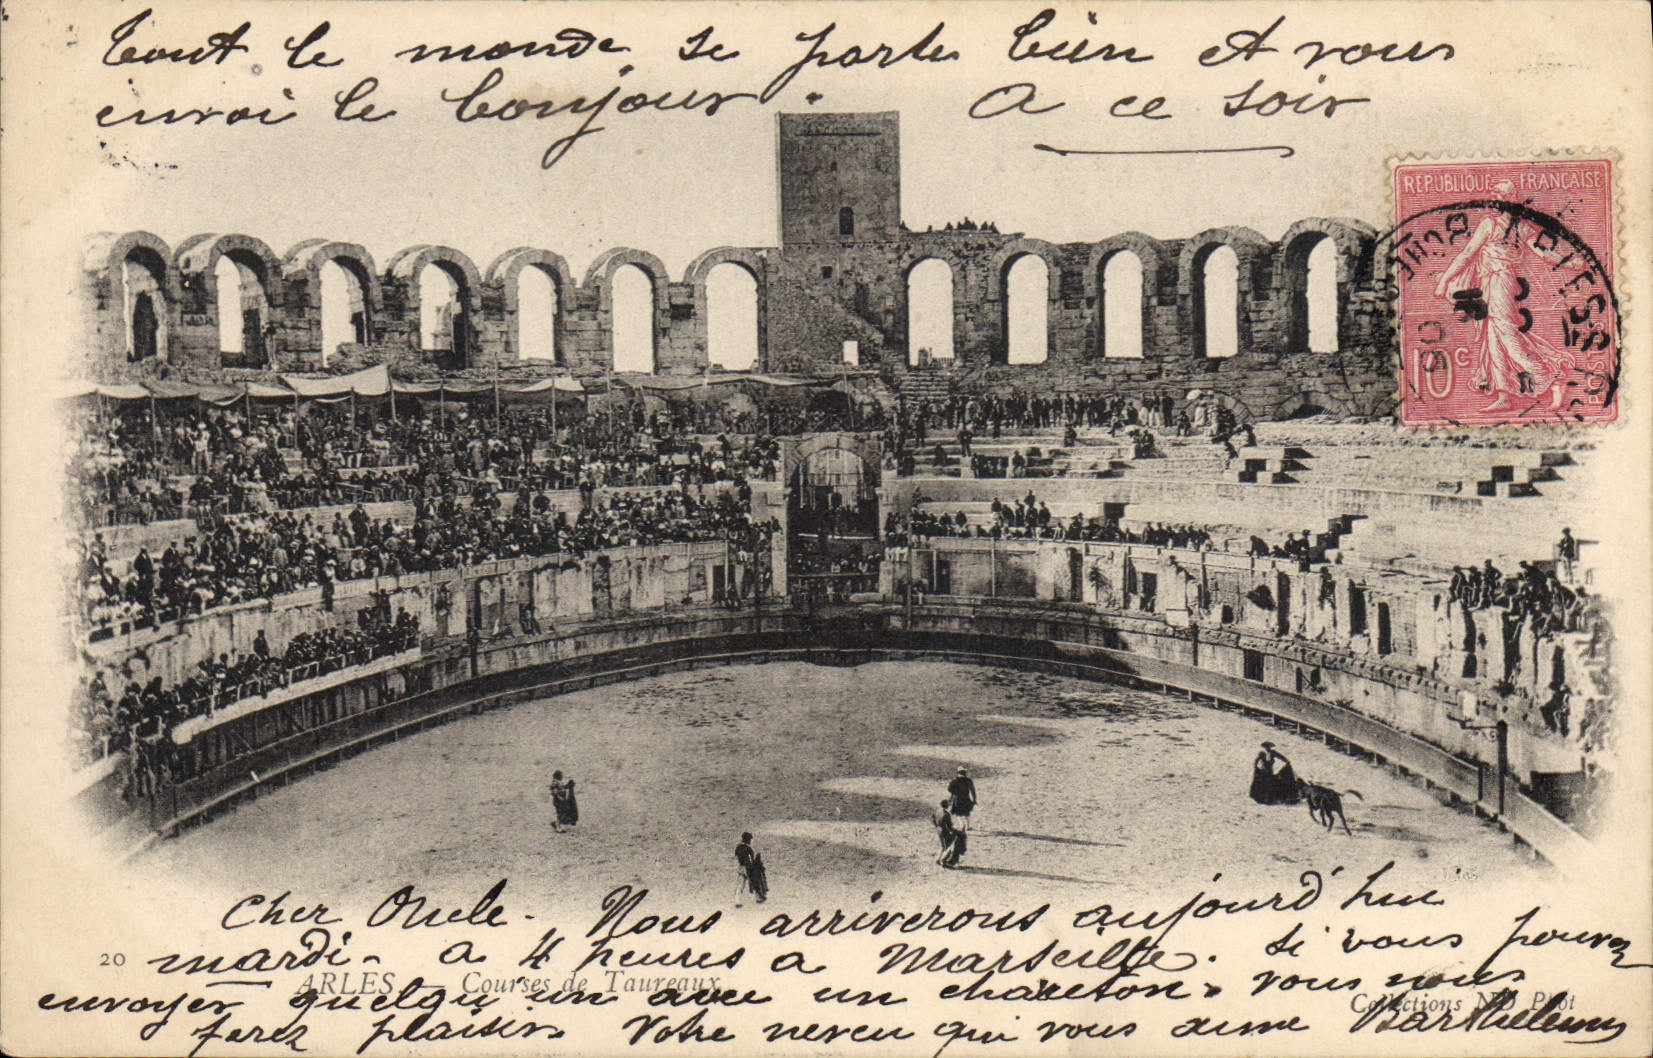 tout le monde se porte bien et vous
envoi le bonjour. A ce soir
REPUBLIQUE FRANÇAISE
10c
POSTES
Cher Oncle. Nous arriverons aujourd'hui
mardi. a 4 heures a Marseille. Si vous pouvez
20 ARLES. — Courses de Taureaux
envoyer quelqu'un avec un chareton. vous nous
Collections ND Phot
ferez plaisir. Votre neveu qui vous aime Barthelemy